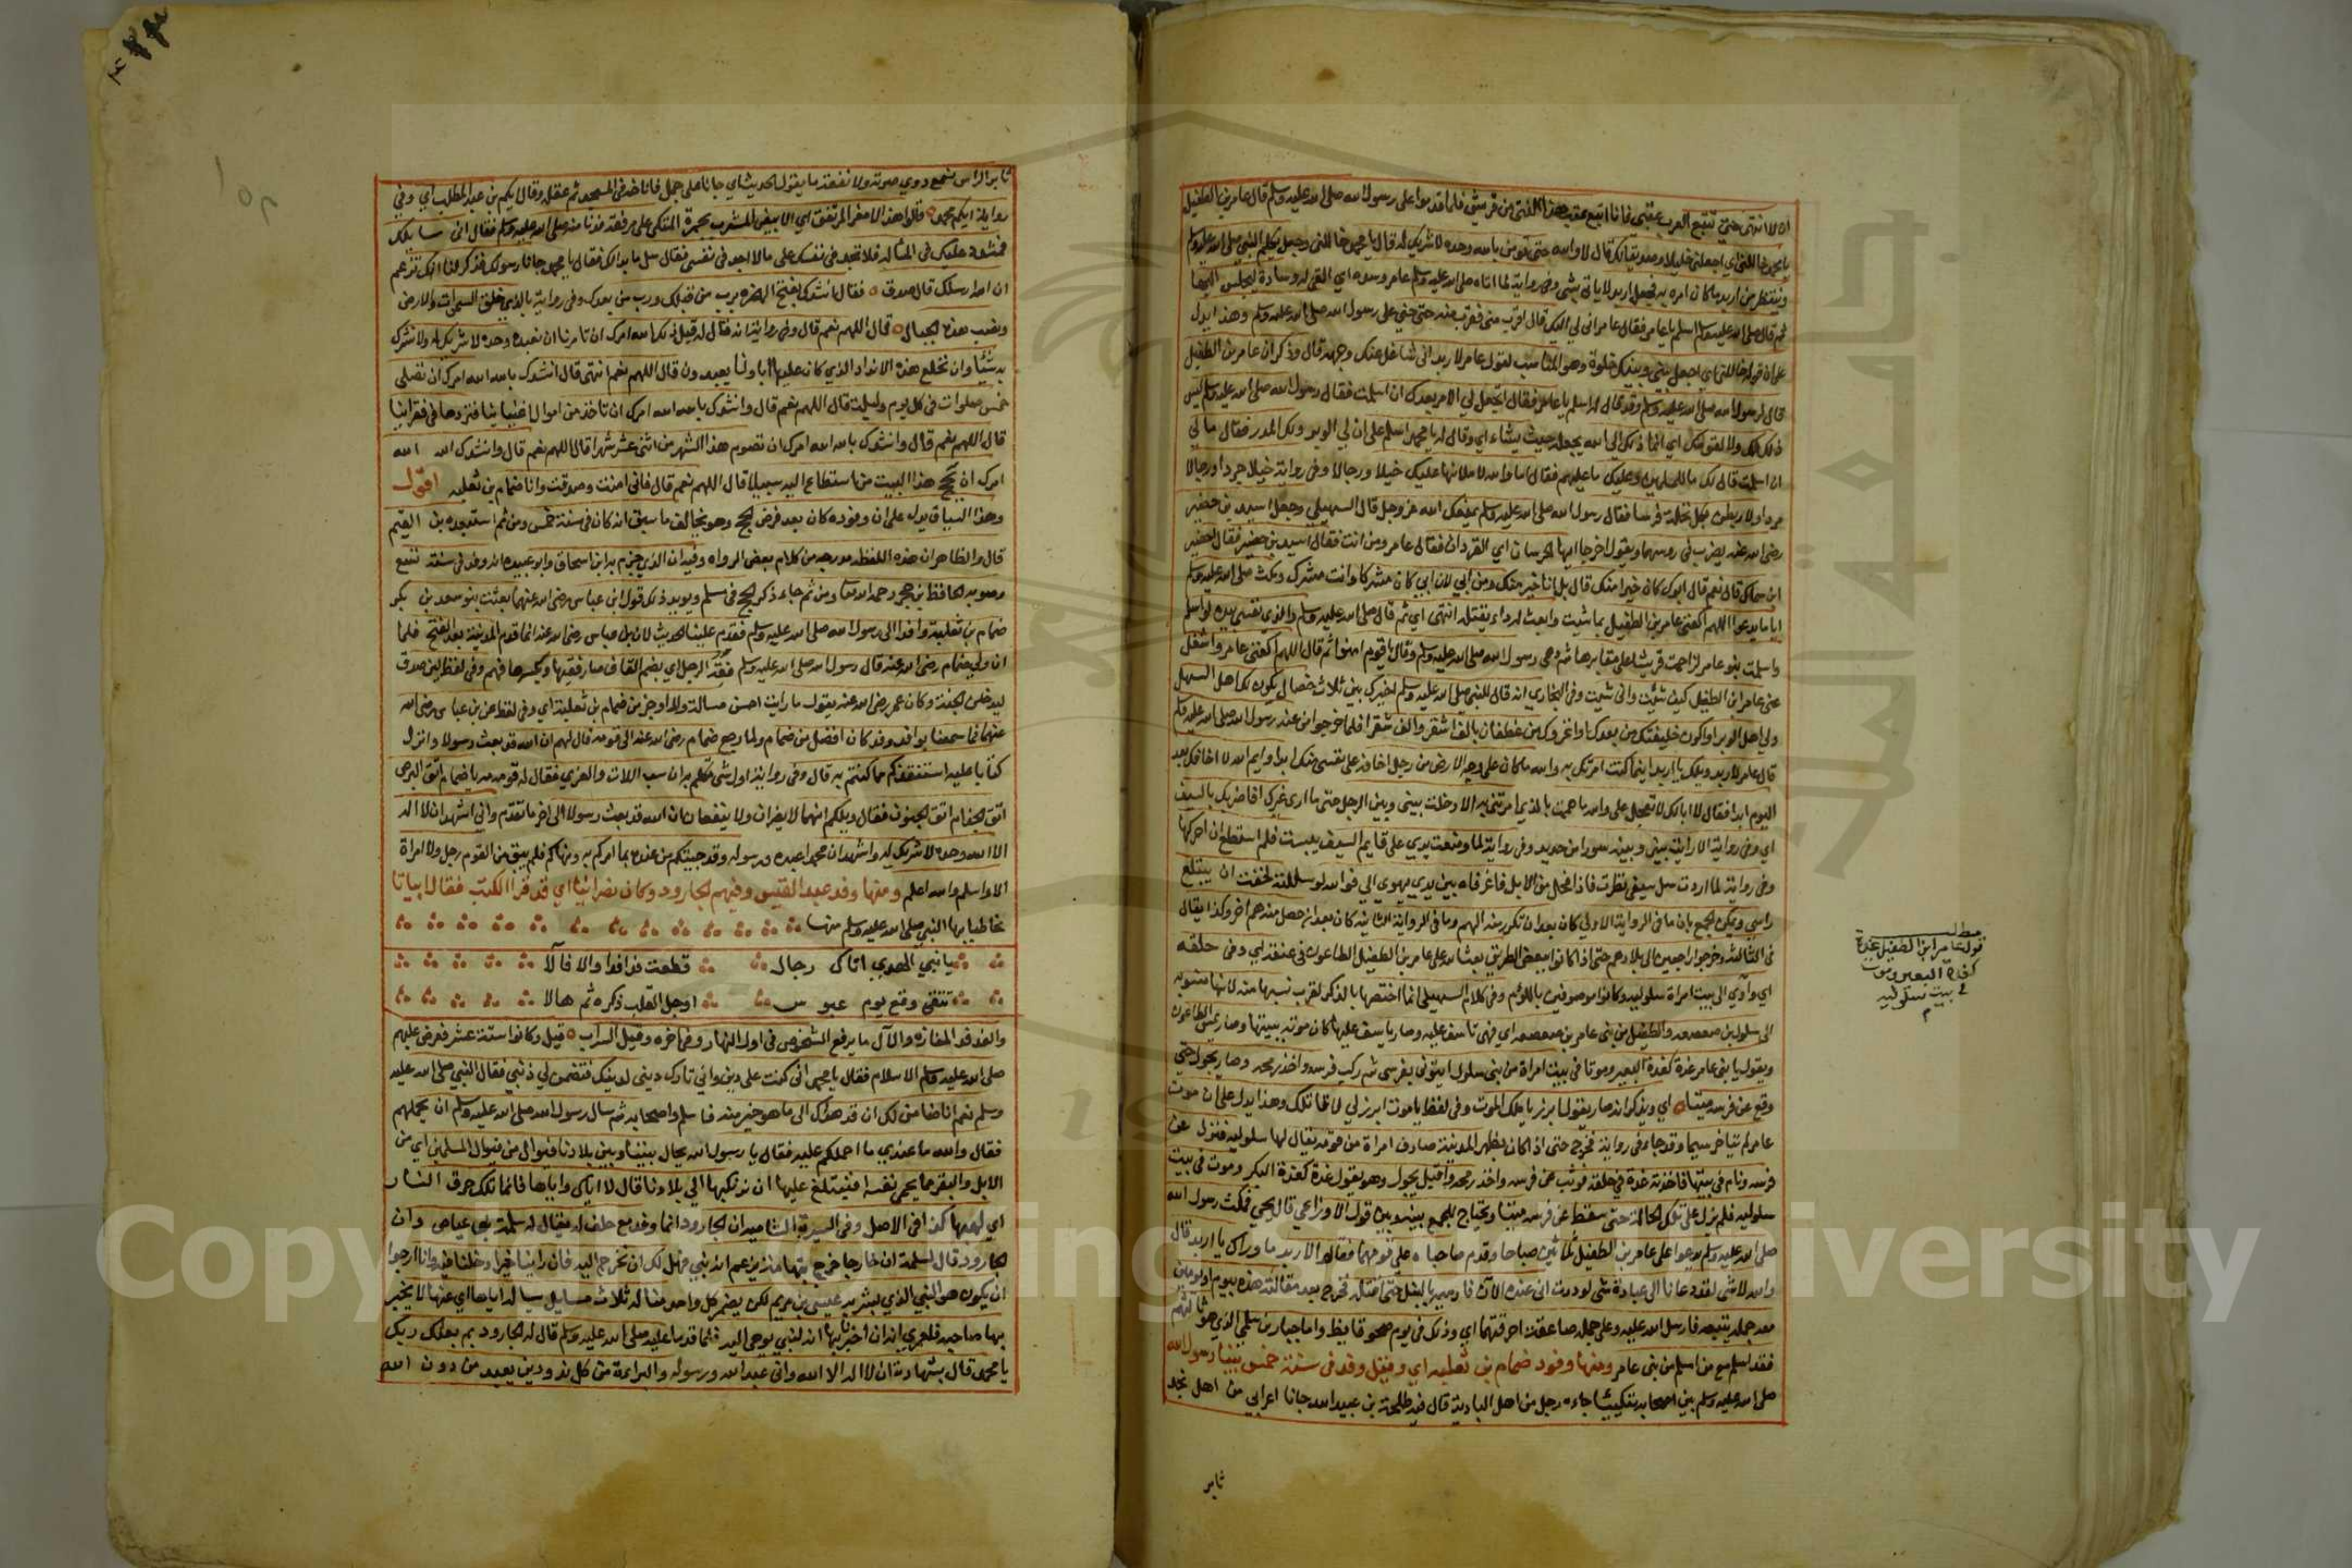 ان لا انتهى حتى تتبع العرب عقبي فانا اتبع عقب هذا الفتى من قريش فلما قدموا على رسول الله صلى الله عليه وسلم قال عامر بن الطفيل
يا محمد خاللني اي اجعلني خليلا وصديقا لك قال لا والله حتى تؤمن بالله وحده لا شريك له قال يا محمد خاللني وجعل يكلم النبي صلى الله عليه وسلم
وينتظر من اربد ما كان امره به فجعل اربد لا ياتي بشي وفي رواية لما اتاه صلى الله عليه وسلم عامر وسده اي القى له وسادة ليجلس عليها
ثم قال صلى الله عليه وسلم اسلم يا عامر فقال عامر ان لي اليك قال اقرب مني فقرب منه حتى حنى على رسول الله صلى الله عليه وسلم وهذا يدل
على ان قوله خاللني اي اجعل بيني وبينك خلوة وهو المناسب لقول عامر لاربد اني شاغل عنك وجهه قال وذكر ان عامر بن الطفيل
قال لرسول الله صلى الله عليه وسلم وقد قال له اسلم يا عامر فقال اتجعل لي الامر بعدك ان اسلمت فقال رسول الله صلى الله عليه وسلم ليس
ذلك لك ولا لقومك اي انما ذلك الى الله يجعله حيث يشاء اي وقال له يا محمد اسلم على ان لي الوبر ولك المدر فقال ما لي
ان اسلمت قال لك ما للمسلمين وعليك ما عليهم فقال اما والله لاملانها عليك خيلا ورجالا وفي رواية خيلا جردا ورجالا
مردا ولاربطن بكل نخلة فرسا فقال رسول الله صلى الله عليه وسلم يمنعك الله عز وجل قال السهيلي وجعل اسيد بن حضير
رضي الله عنه يضرب في روسهما ويقول اخرجا ايها الهجرسان اي القردان فقال عامر ومن انت فقال اسيد بن حضير فقال احضير
ابن سماك قال نعم قال ابوك كان خيرا منك قال بل انا خير منك ومن ابي لان ابي كان مشركا وانت مشرك ومكث صلى الله عليه وسلم
اياما يدعوا اللهم اكفني عامر بن الطفيل بما شيت وابعث له داء يقتله انتهى اي ثم قال صلى الله عليه وسلم والذي نفسي بيده لو اسلم
واسلمت بنو عامر لزاحمت قريشا على منابرها ثم دعى رسول الله صلى الله عليه وسلم وقال يا قوم امنوا ثم قال اللهم اكفني عامر واشغل
عني عامر ابن الطفيل كيف شيت وانى شيت وفي البخاري انه قال للنبي صلى الله عليه وسلم اخيرك بين ثلاث خصال يكون لك اهل السهل
ولي اهل الوبر او اكون خليفتك من بعدك او اغزوك من غطفان بالف اشقر والف شقرا فلما خرجوا من عند رسول الله صلى الله عليه وسلم
قال عامر لاربد ويلك يا اربد اين ما كنت امرتك به والله ما كان على وجه الارض من رجل اخافه على نفسي منك ابدا وايم الله لا اخافك بعد
اليوم ابدا فقال لا ابا لك لا تعجل علي والله ما هممت بالذي امرتني به الا دخلت بيني وبين الرجل حتى ما ارى غيرك افاضربك بالسيف
اي وفي رواية الا رايت بيني وبينه سورا من حديد وفي رواية لما وضعت يدي على قايم السيف يبست فلم استطع ان احركها
وفي رواية لما اردت سل سيفي نظرت فاذا فحل من الابل فاغرفاه بين يدي يهوي الي فوالله لو سللته لخفت ان يبتلع
راسي ويمكن الجمع بان ما في الرواية الاولى كان بعد ان تكرر منه الهم وما في الرواية الثانية كان بعد ان حصل منه هم اخر وكذا يقال
في الثالثة وخرجوا راجعين الى بلادهم حتى اذا كانوا ببعض الطريق بعث الله على عامر بن الطفيل الطاعون في عنقه اي وفي حلقه
اي وآوى الى بيت امراة سلولية وكانوا موصوفين باللوم وفي كلام السهيلي انما اختصها بالذكر لقرب نسبها منه لانها منسوبة
الى سلول بن صعصعة والطفيل من بني عامر بن صعصعة اي فهي تاسف عليه وصار ياسف عليها كان موته ببيتها وصار يمس الطاعون
ويقول يا بني عامر غدة كغدة البعير وموتا في بيت امراة من بني سلول ايتوني بفرسي ثم ركب فرسه واخذ رمحه وصار يجول حتى
وقع عن فرسه ميتا اي ويذكر انه صار يقول ابرز يا ملك الموت وفي لفظ يا موت ابرز لي لاقاتلك وهذا يدل على ان موت
عامر لم يتاخر سيما وقد جاء في رواية فخرج حتى اذا كان بظهر المدينة صادف امراة من قومه يقال لها سلولية فنزل عن
فرسه ونام في بيتها فاخذته غدة في حلقه فوثب على فرسه واخذ رمحه واقبل يجول وهو يقول غدة كغدة البكر وموت في بيت
سلولية فلم يزل على تلك الحالة حتى سقط عن فرسه ميتا ويحتاج للجمع بينه وبين قول الاوزاعي قال يحيى فمكث رسول الله
صلى الله عليه وسلم يدعوا على عامر بن الطفيل ثلاثين صباحا وقدم صاحباه على قومهما فقالوا لاربد ما وراك يا اربد قال
والله لا شي لقد دعانا الى عبادة شي لوددت اني عنده الآن فارميه بالنبل حتى اقتله فخرج بعد مقالته هذه بيوم او يومين
معه جمله يتبعه فارسل الله عليه وعلى جمله صاعقة احرقتهما اي وذلك في يوم صحو قايظ واما جبار بن سلمى الذي هو ثالثهم
فقد اسلم مع من اسلم من بني عامر ومنها وفود ضمام بن ثعلبه اي وقيل وفد في سنة خمس بينا رسول الله
صلى الله عليه وسلم بين اصحابه متكئا جاءه رجل من اهل البادية قال فيه طلحة بن عبيد الله جانا اعرابي من اهل نجد
ثاير
مطلب
قول عامر ابن الطفيل غدة
كغدة البعير وموت
في بيت سلوليه
م
ثاير الراس نسمع دوي صوته ولا نفقه ما يقول الحديث اي جانا على جمل فاناخه في المسجد ثم عقله وقال ايكم بن عبد المطلب اي وفي
رواية ايكم محمد قالوا هذا الامغر المرتفق اي الابيض المشرب بحمرة المتكي على مرفقه فدنا منه صلى الله عليه وسلم فقال اني سايلك
فمشدد عليك في المسالة فلا تجد في نفسك علي قال لا اجد في نفسي فقال سل ما بدا لك فقال يا محمد جانا رسولك فذكر لنا انك تزعم
ان الله ارسلك قال صدق فقال انشدك بفتح الهمزة برب من قبلك ورب من بعدك وفي رواية بالذي خلق السموات والارض
ونصب هذه الجبال قال اللهم نعم قال وفي رواية انه قال له قبل ذلك الله امرك ان تامرنا ان نعبده وحده لا شريك له ولا نشرك
به شيئا وان نخلع هذه الانداد الذي كان عليها اباونا يعبدون قال اللهم نعم انتهى قال انشدك بالله الله امرك ان نصلي
خمس صلوات في كل يوم وليلة قال اللهم نعم قال وانشدك بالله الله امرك ان تاخذ من اموال اغنيائنا فتردها في فقرائنا
قال اللهم نعم قال وانشدك بالله الله امرك ان نصوم هذا الشهر من اثني عشر شهرا قال اللهم نعم قال وانشدك الله الله
امرك ان نحج هذا البيت من استطاع اليه سبيلا قال اللهم نعم قال فاني امنت وصدقت وانا ضمام بن ثعلبه اقول
وهذا السياق يدل على ان وفوده كان بعد فرض الحج وهو يخالف ما سبق انه كان في سنة خمس ومن ثم استبعده بن القيم
قال والظاهر ان هذه اللفظه مدرجه من كلام بعض الرواه وفيه ان الذي جزم به ابن اسحاق وابو عبيده انه وفد في سنة تسع
وصوبه الحافظ بن حجر رحمه الله تعالى ومن ثم جاء ذكر الحج في مسلم ويويد ذلك قول ابن عباس رضي الله عنهما بعثت بنو سعد بن بكر
ضمام بن ثعلبة وافدا الى رسول الله صلى الله عليه وسلم فقدم علينا الحديث لان بن عباس رضي الله عنه انما قدم المدينة بعد الفتح فلما
ان ولي ضمام رضي الله عنه قال رسول الله صلى الله عليه وسلم فقه الرجل اي بضم القاف صار فقيها وبكسرها فهم وفي لفظ لئن صدق
ليدخلن الجنة وكان عمر رضي الله عنه يقول ما رايت احسن مسالة ولا اوجز من ضمام بن ثعلبة اي وفي لفظ عن بن عباس رضي الله
عنهما فما سمعنا بوافد وفد كان افضل من ضمام ولما رجع ضمام رضي الله عنه الى قومه قال لهم ان الله قد بعث رسولا وانزل
كتابا عليه استنقذكم مما كنتم به قال وفي رواية اول شي تكلم به ان سب اللات والعزي فقال له قومه مه يا ضمام اتق البرص
اتق الجذام اتق الجنون فقال ويلكم انهما لا يضران ولا ينفعان ان الله قد بعث رسولا الى اخر ما تقدم واني اشهد ان لا اله
الا الله وحده لا شريك له واشهد ان محمدا عبده ورسوله وقد جيتكم من عنده بما امركم به ونهاكم فلم يبق من القوم رجل ولا امراة
الا واسلم والله اعلم ومنها وفد عبد القيس وفيهم الجارود وكان نصرانيا اي قد قرا الكتب فقال ابياتا
يخاطب بها النبي صلى الله عليه وسلم منها
يا نبي الهدي اتاك رجال قطعت فدفدا والا فآلا
تتقي وقع يوم عبوس اوجل القلب ذكره ثم هالا
والفدفد المفازه والآل ما يرفع الشخوص في اول النهار وفي اخره وقيل السراب قيل وكانوا ستة عشر فعرض عليهم
صلى الله عليه وسلم الاسلام فقال يا محمد اني كنت على دين واني تارك ديني لدينك فتضمن لي ذنبي فقال النبي صلى الله عليه
وسلم نعم انا ضامن لك ان قد هداك الى ما هو خير منه فاسلم واصحابه ثم سال رسول الله صلى الله عليه وسلم ان يحملهم
فقال والله ما عندي ما احملكم عليه فقال يا رسول الله يحال بيننا وبين بلادنا ضوال من ضوال المسلمين اي من
الابل والبقر مما يحمي نفسه افنتبلغ عليها ان نركبها الى بلادنا قال لا اياك واياها فانما تلك حرق النار
اي لهبها كذا في الاصل وفي السيرة الشاميه ان الجارود انما وفد مع حلف له يقال له سلمة بن عياض وان
الجارود قال لسلمة ان خارجا خرج بتهامة يزعم انه نبي فهل لك ان نخرج اليه فان راينا خيرا دخلنا فيه وانا ارجوا
ان يكون هو النبي الذي بشر به عيسى بن مريم لكن يضمر كل واحد منا له ثلاث مسايل يسأله اياها اي عنها لا يخبر
بها صاحبه فلعمري انه ان اخبرنا بها انه لنبي يوحى اليه فلما قدما عليه صلى الله عليه وسلم قال له الجارود بم بعثك ربك
يا محمد قال بشهادة ان لا اله الا الله واني عبد الله ورسوله والبراءة من كل ند ودين يعبد من دون الله
Copy University